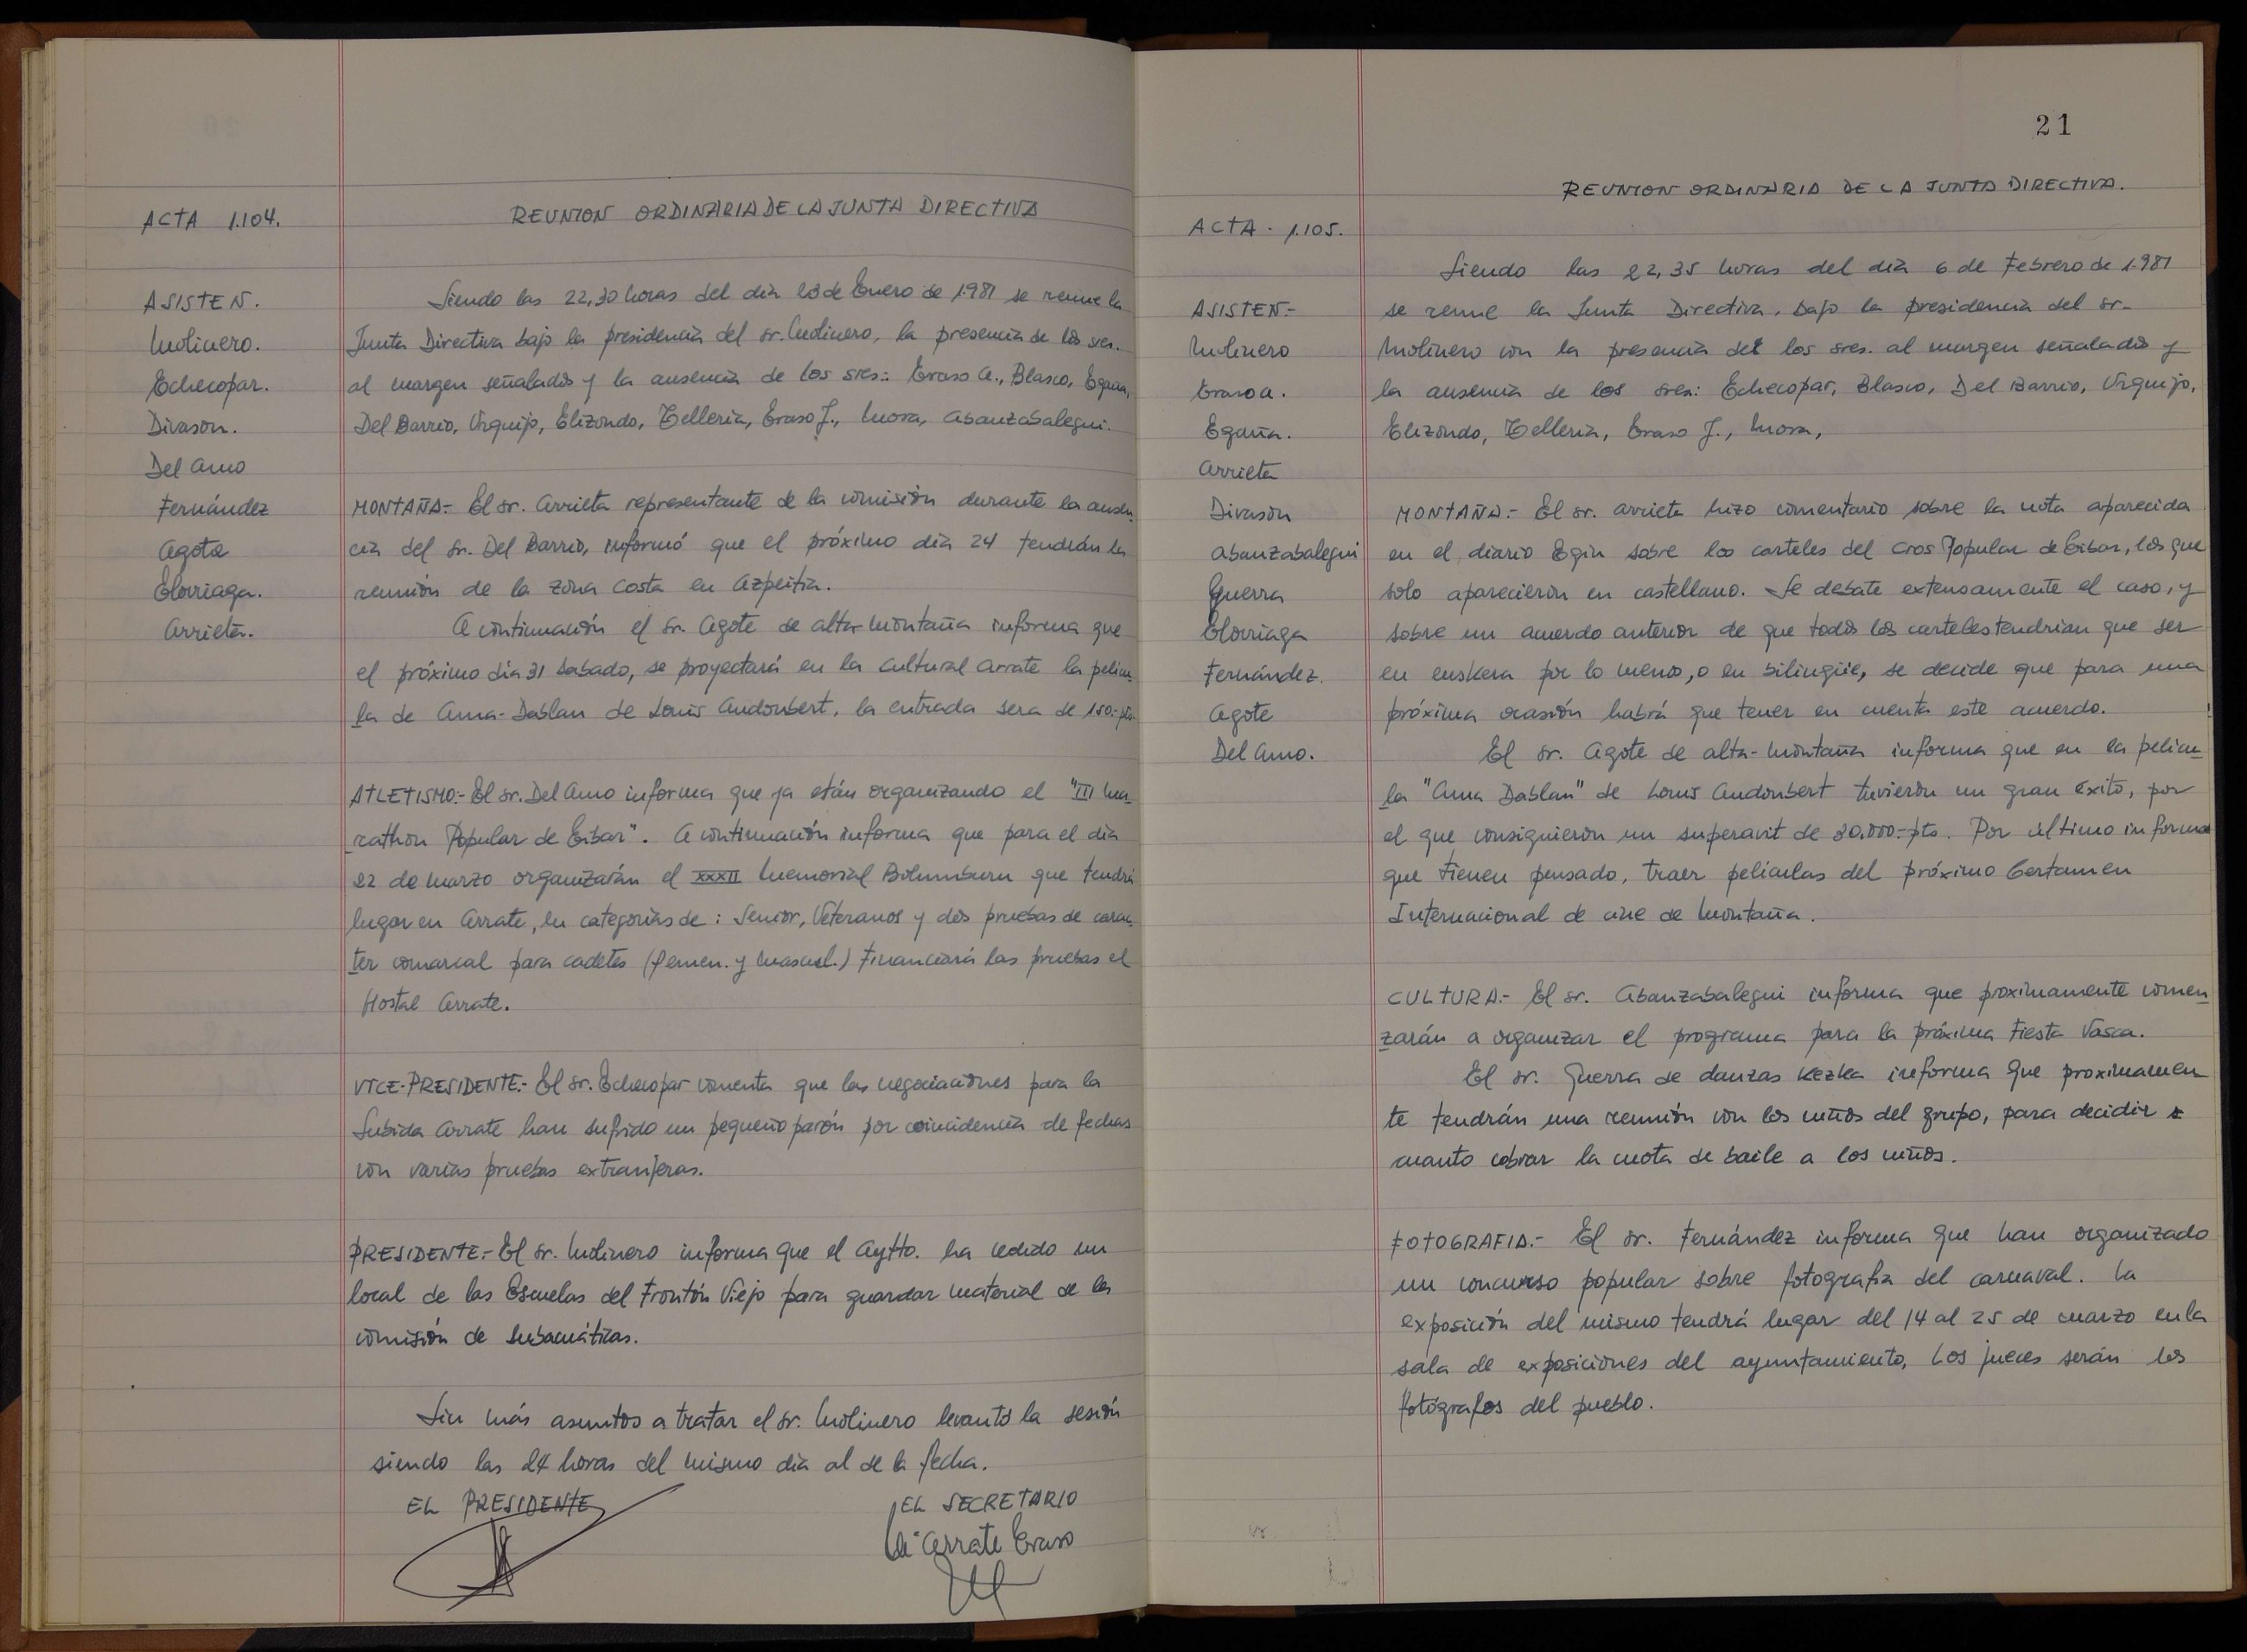 ACTA 1.104.
REUNION ORDINARIA DE LA JUNTA DIRECTIVA
ASISTEN.
Molinero.
Echecopar.
Divason.
Del Amo
Fernández
Agote
Elorriaga.
Arrieta.
Siendo las 22,30 horas del dia de Enero de 1981 se reune la
Junta Directiva bajo la presidencia del sr. Molinero, la presencia de los sres.
al margen señalados y la ausencia de los sres.: Eraso A., Blasco, Egaña,
Del Barrio, Urquijo, Elizondo, Telleria, Eraso J., Mora, Abanzabalegui.
MONTAÑA.- El sr. Arrieta representante de la comisión durante la ausen_
cia del Sr. Del Barrio, informó que el próximo dia 24 tendrán la
reunión de la zona costa en Azpeitia.
A continuación el Sr. Agote de alta-montaña informa que
el próximo dia 31 sabado, se proyectará en la Cultural Arrate la pelicu_
la de Ama-Dablan de Louis Audoubert, la entrada sera de 150.-pts.
ATLETISMO.- El sr. Del Amo informa que ya están organizando el "III Ma_
rathon Popular de Eibar". A continuación informa que para el dia
22 de Marzo organizarán el XXXII Memorial Bolumburu que tendrá
lugar en Arrate, en categorias de: Senior, Veteranos y dos pruebas de carac_
ter comarcal para cadetes (femen. y mascul.) Financiará las pruebas el
Hostal Arrate.
VICE-PRESIDENTE.- El sr. Echecopar comenta que las negociaciones para la
Subida Arrate han sufrido un pequeño parón por coincidencia de fechas
con varias pruebas extranjeras.
PRESIDENTE.- El sr. Molinero informa que el Aytto. ha cedido un
local de las Escuelas del Frontón Viejo para guardar material de la
comisión de Subacuáticas.
Sin más asuntos a tratar el sr. Molinero levantó la sesión
siendo las 24 horas del mismo dia al de la fecha.
EL PRESIDENTE
EL SECRETARIO
Mª Arrate Eraso
21
REUNION ORDINARIA DE LA JUNTA DIRECTIVA.
ACTA - 1.105.
ASISTEN.-
Molinero
Eraso A.
Egaña.
Arrieta
Divason
Abanzabalegui
Guerra
Elorriaga
Fernández.
Agote
Del Amo.
Siendo las 22,35 horas del dia 6 de Febrero de 1981
se reune la Junta Directiva, bajo la presidencia del sr.
Molinero con la presencia del los sres. al margen señalados y
la ausencia de los sres: Echecopar, Blasco, Del Barrio, Urquijo,
Elizondo, Telleria, Eraso J., Mora,
MONTAÑA.- El sr. Arrieta hizo comentario sobre la nota aparecida
en el diario Egin sobre los carteles del Cros Popular de Eibar, los que
solo aparecieron en castellano. Se debate extensamente el caso, y
sobre un acuerdo anterior de que todos los carteles tendrian que ser
en euskera por lo menos, o en bilingüe, se decide que para una
próxima ocasión habrá que tener en cuenta este acuerdo.
El sr. Agote de alta-montaña informa que en la pelicu_
la "Ama Dablan" de Louis Audoubert tuvieron un gran éxito, por
el que consiguieron un superavit de 30.000.-pts. Por último informa
que tienen pensado, traer peliculas del próximo Certamen
Internacional de cine de Montaña.
CULTURA.- El sr. Abanzabalegui informa que proximamente comen_
zarán a organizar el programa para la próxima Fiesta Vasca.
El sr. Guerra de danzas Kezka informa que proximamen
te tendrán una reunión con los niños del grupo, para decidir
cuanto cobrar la cuota de baile a los niños.
FOTOGRAFIA.- El sr. Fernández informa que han organizado
un concurso popular sobre fotografia del carnaval. La
exposición del mismo tendrá lugar del 14 al 25 de marzo en la
sala de exposiciones del ayuntamiento, los jueces serán los
fotógrafos del pueblo.